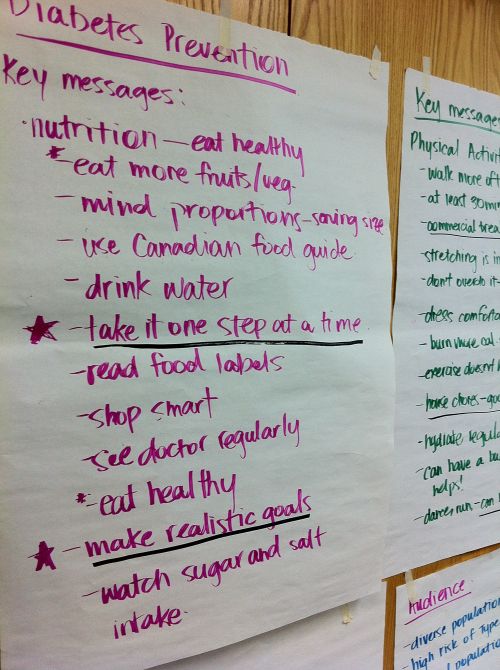 Diabetes Prevention
Key messages:
·nutrition — eat healthy
*-eat more fruits/veg.
- mind proportions - serving size
- use Canadian food guide
- drink water
★ - take it one step at a time.
- read food labels
- shop smart
- see doctor regularly
*- eat healthy
★ - make realistic goals
- watch sugar and salt
intake.
Key messages
Physical Activi
- walk more oft
- at least 30 min
- commercial brea
- stretching is i
- don't overdo it-
- dress comforta
- burn more cal.
- exercise doesn't
- house chores-
- hydrate regul
- can have a bu
helps!
- dance, run, - can
Audience
- diverse population
- high risk of Type
population